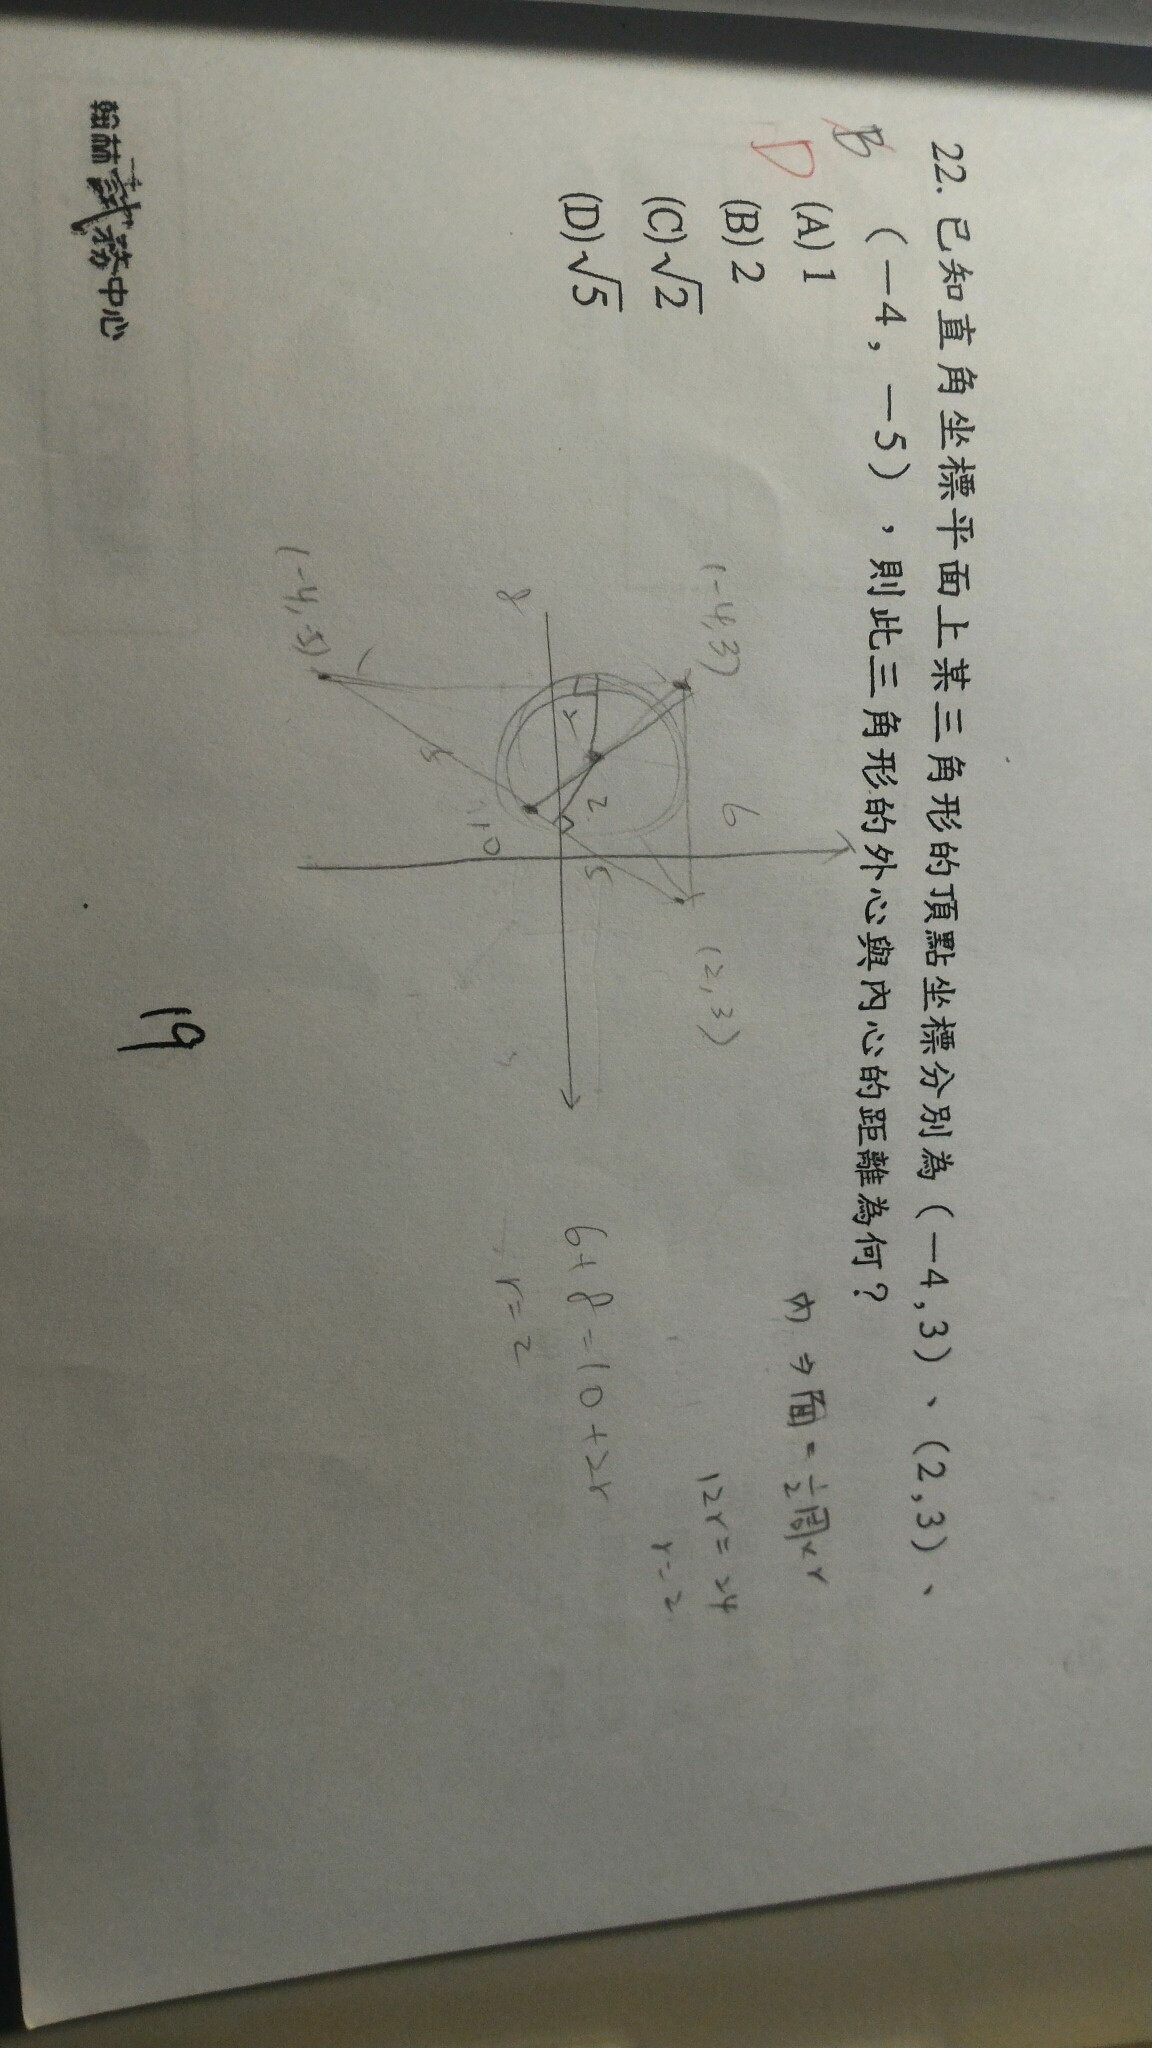 22. 已知直角坐標平面上某三角形的頂點坐標分別為(-4,3)、(2,3)、
(-4,-5),則此三角形的外心與內心的距離為何?
B
D
(A) 1
(B) 2
(C) √2
(D) √5
內 ⇒ 面 = 1/2 周 × r
12r = 24
r = 2
6
(-4,3)
(2,3)
8
r
2
5
5
10
(-4,-5)
6+8=10+2r
r=2
翰林試務中心
19